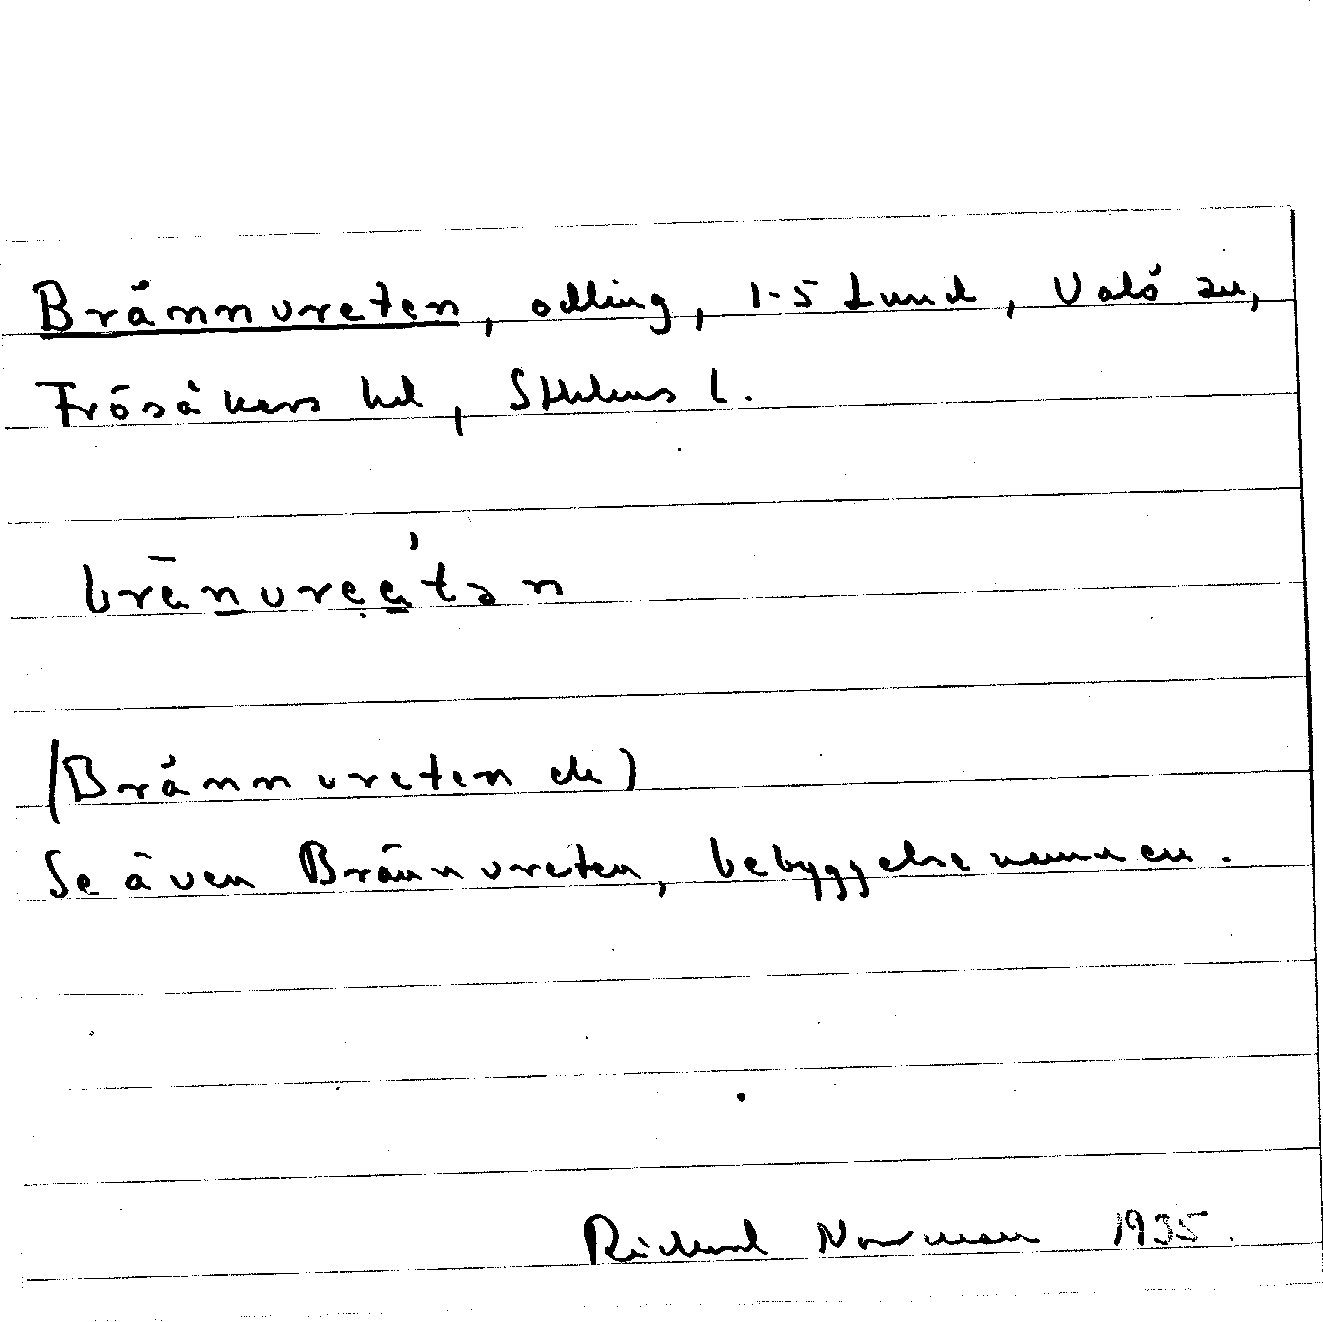 Brännvreten, odling, 1-5 Lund, Valö sn,
Frösåkers hd, Sthlms l.
(Brännvreten ek)
Se även Brännvreten, bebyggelsenamnen.
Richard Norman 1935.